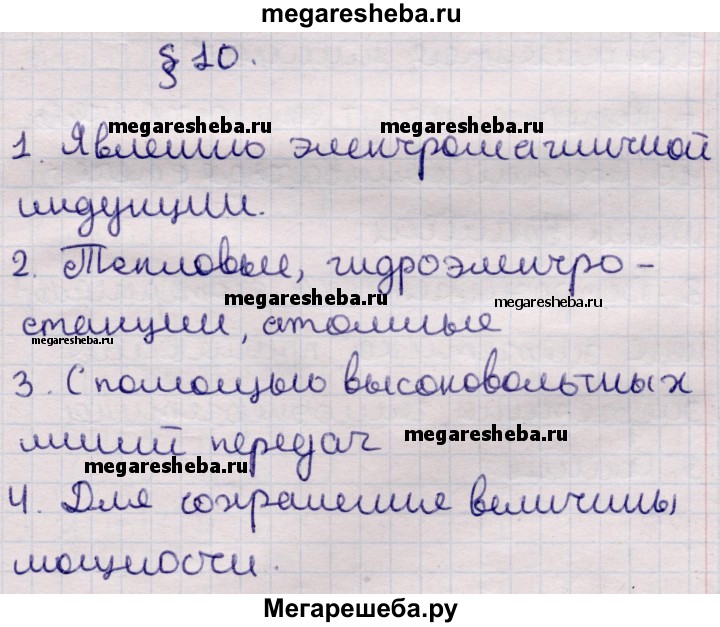 megaresheba.ru
§ 10.
megaresheba.ru megaresheba.ru
1. Явлению электромагничной
индукции.
2. Тепловые, гидроэлектро-
megaresheba.ru megaresheba.ru
станции, атомные
megaresheba.ru
3. С помощью высоковольтных
линий передач megaresheba.ru
megaresheba.ru
4. Для сохранение величины
мощности.
Мегарешеба.ру